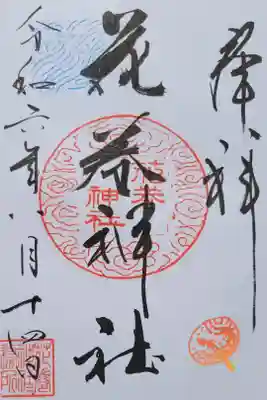 奉拝
花巻神社
花巻
神社
令和六年八月十四日